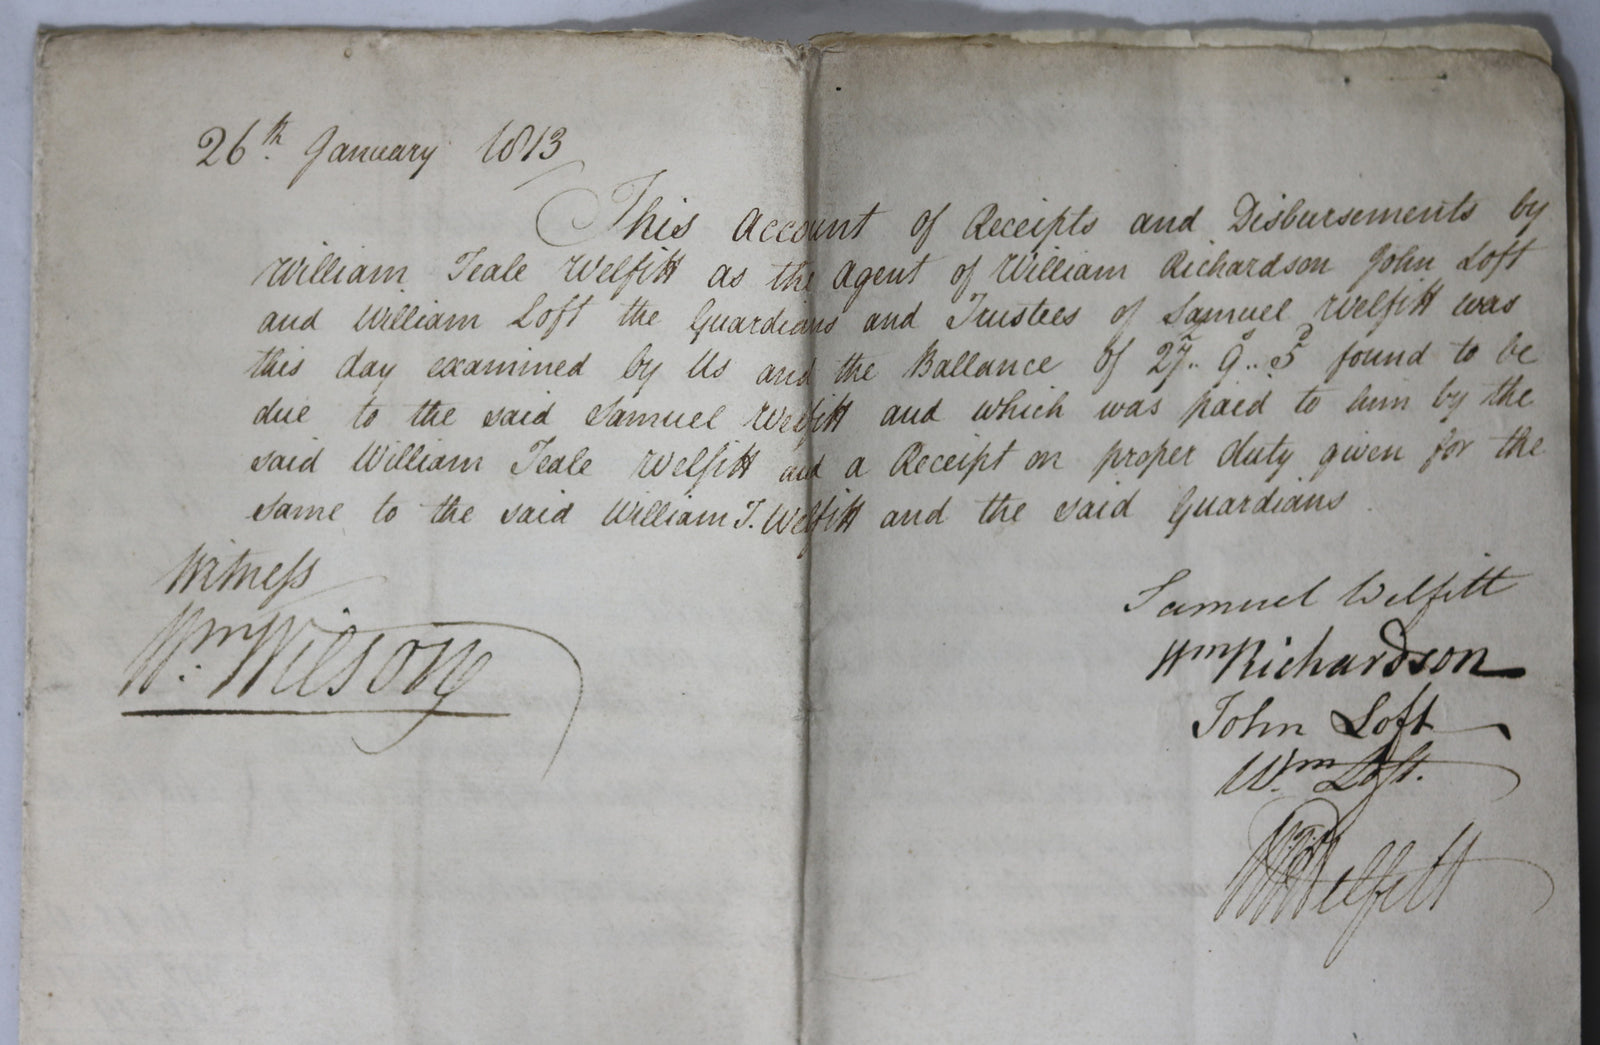 26th January 1813
This Account of Receipts and Disbursements by
William Teale Welfitt as the Agent of William Richardson John Loft
and William Loft the Guardians and Trustees of Samuel Welfitt was
this day examined by Us and the Ballance of 27.. 9.. 5 found to be
due to the said Samuel Welfitt and which was paid to him by the
said William Teale Welfitt and a Receipt on proper duty given for the
same to the said William T. Welfitt and the said Guardians
Witness
Wm. Wilson
Samuel Welfitt
Wm Richardson
John Loft
Wm. Loft.
Wm T Welfitt